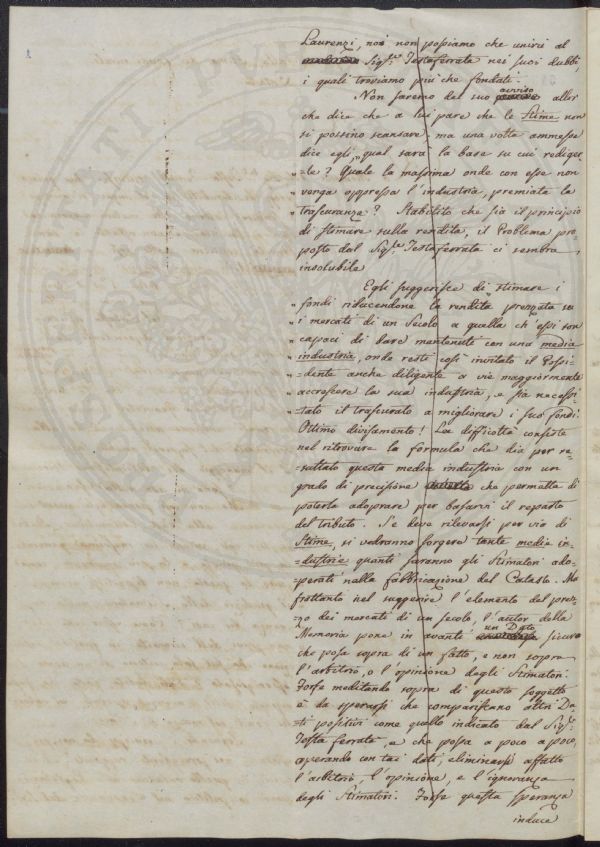 Laurenzi, noi non possiamo che unirci al
Sig.r Testaferrata nei suoi dubbi,
i quali troviamo più che fondati.
Non saremo del suo avviso allor
che dice che a lui pare che le Stime non
si possino scansare, ma una volta ammesse
dice egli, qual sarà la base su cui rediger
=le? Quale la massima onde con esse non
venga oppressa l'industria, premiata la
trascuranza? Stabilito che sia il principio
di stimare sulla rendita, il Problema pro
posto dal Sig.r Testaferrata ci sembra
insolubile
Egli suggerisce di "stimare i
" fondi riducendone la rendita prezzata su
" i mercati di un Secolo a quella ch'essi son
" capaci di dare mantenuti con una media
" industria, onde resti così invitato il Possi=
" =dente anche diligente a vie maggiormente
" accrescere la sua industria, e sia necessi=
" =tato il trascurato a migliorare i suoi fondi.
Ottimo divisamento! La difficoltà consiste
nel ritrovare la formula che dia per re=
=sultato questa media industria con un
grado di precisione che permetta di
poterla adoprare per basarvi il reparto
del tributo. Se deve rilevarsi per via di
Stime, si vedranno sorgere tante medie in=
=dustrie quanti saranno gli Stimatori ado=
=perati nella fabbricazione del Catasto. Ma
frattanto nel suggerire l'elemento del prez=
=zo dei mercati di un secolo, l'autor della
Memoria pone in avanti un Dato sicuro
che posa sopra di un fatto, e non sopra
l'arbitrio, o l'opinione degli Stimatori.
Forse meditando sopra di questo soggetto
è da sperarsi che compariscano altri Da
=ti positivi come quello indicato dal Sig.r
Testa ferrata, e che possa a poco a poco,
operando con tai dati, eliminarsi affatto
l'arbitrio, l'opinione, e l'ignoranza
degli Stimatori. Forse questa speranza
induce